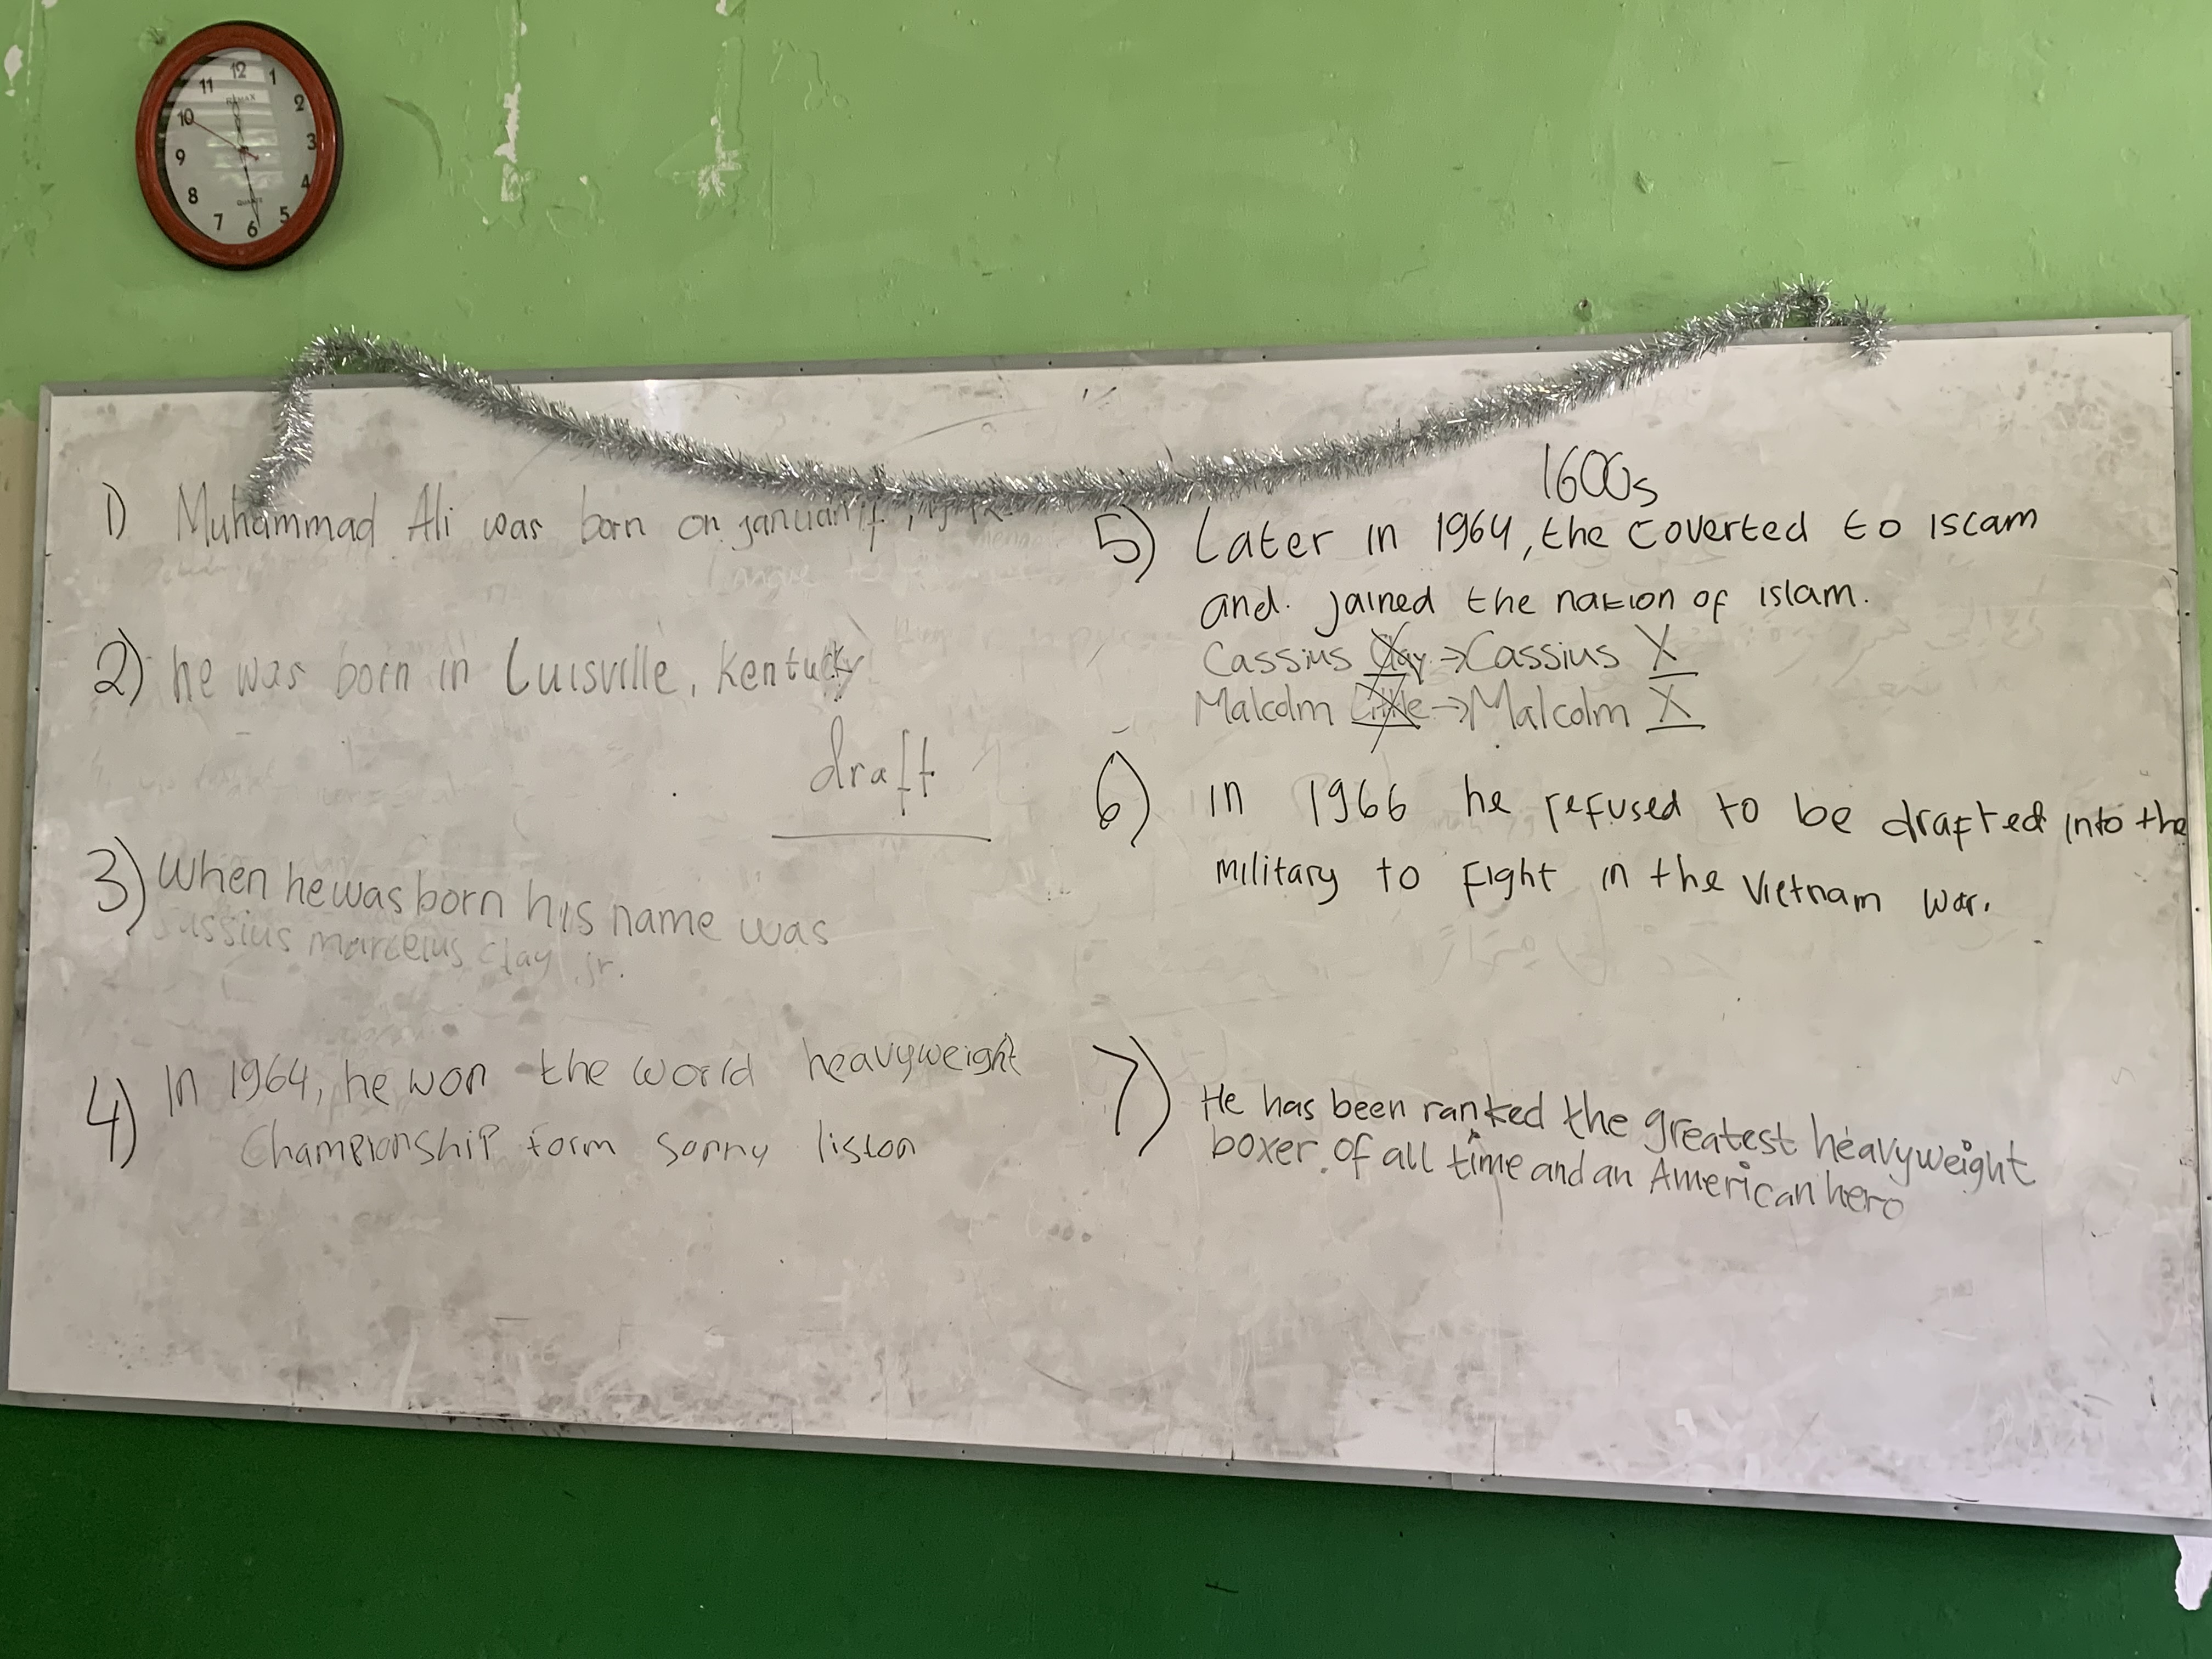 12
1
2
3
4
5
6
7
8
9
10
11
QUARTZ
1) Muhammad Ali was born on january
2) he was born in Luisville, Kentucky
draft
3) When he was born his name was
cassius marcelus clay jr.
4) In 1964, he won the world heavyweight
Championship form sonny liston
1600s
5) Later in 1964, the coverted to Islam
and. jained the nation of islam.
Cassius Clay → Cassius X
Malcolm Little → Malcolm X
6) in 1966 he refused to be drafted into the
military to fight in the Vietnam war.
7) He has been ranked the greatest heavyweight
boxer. of all time and an American hero